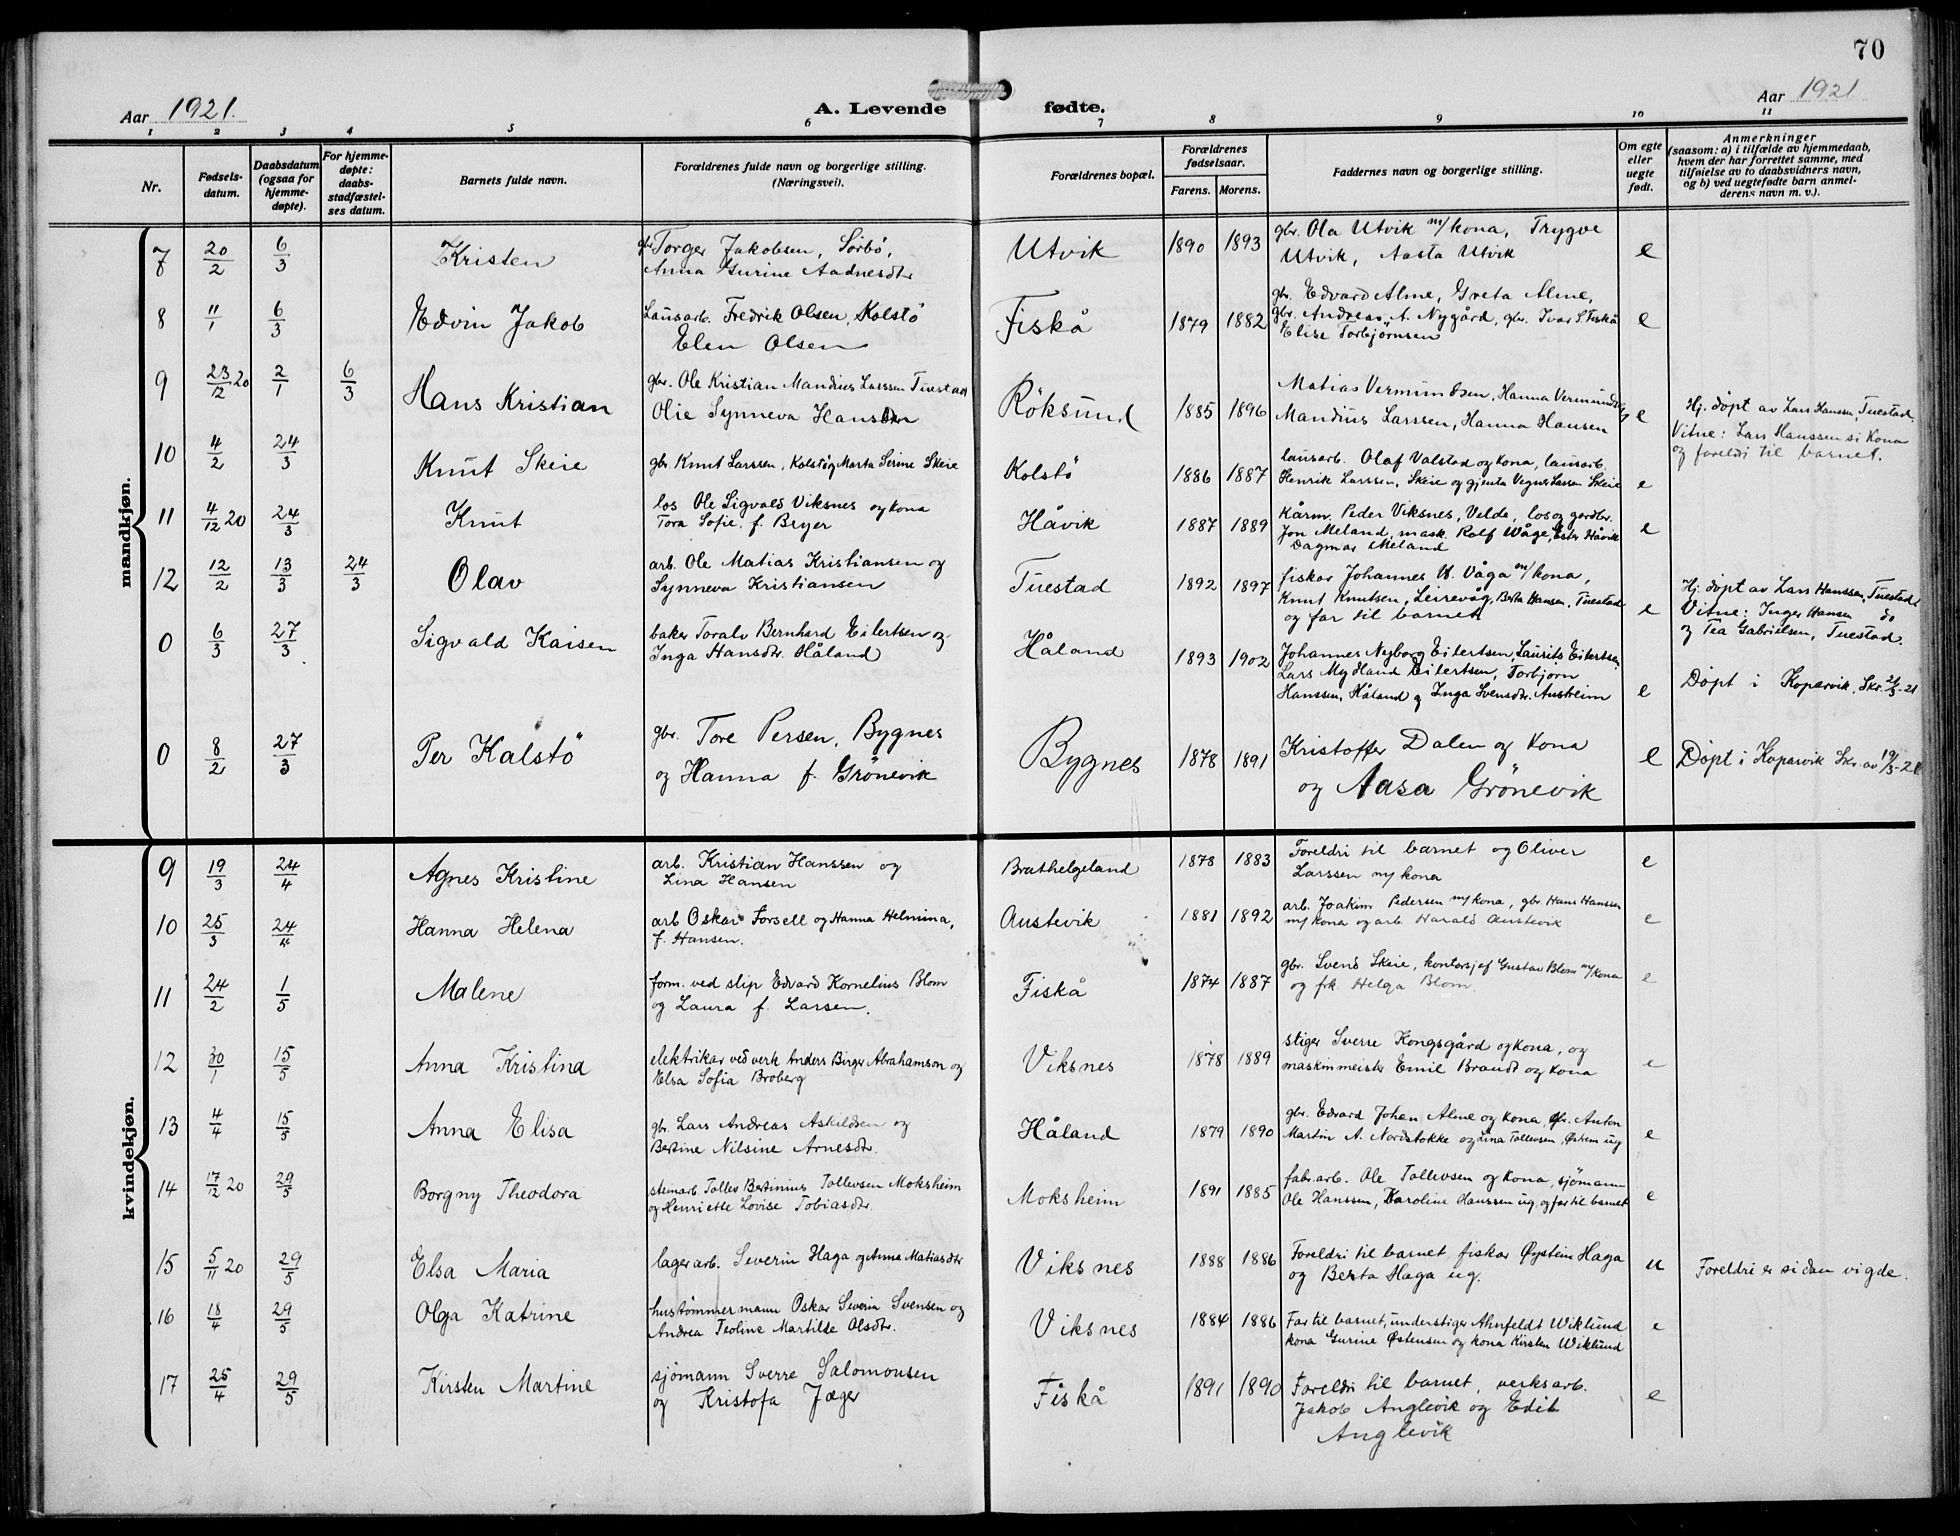 70
Aar 1921.
A. Levende fødte.
Aar 1921
1 2 3 4 5 6 7 8 9 10 11
Nr.
Fødsels-
datum.
Daabsdatum
(ogsaa for
hjemme-
døpte).
For hjemme-
døpte:
daabs-
stadfæstel-
ses datum.
Barnets fulde navn.
Forældrenes fulde navn og borgerlige stilling.
(Næringsvei).
Forældrenes bopæl.
Forældrenes
fødselsaar.
Farens. Morens.
Faddernes navn og borgerlige stilling.
Om egte
eller
uegte
født.
Anmerkninger
(saasom: a) i tilfælde av hjemmedaab,
hvem der har forrettet samme, med
tilføielse av to daabsvidners navn,
og b) ved uegtefødte barn anmel-
derens navn m. v.).
mandkjøn.
7 20/2 6/3 Kristen
gbr Torger Jakobsen, Sörbö,
Anna Gurine Aadnesdtr
Utvik 1890 1893
gbr. Ola Utvik m/kona, Trygve
Utvik, Aasta Utvik
e
8 11/1 6/3 Edvin Jakob
Lausarb. Fredrik Olsen, Kolstö
Elen Olsen
Fiskå 1879 1882
gbr. Edvard Alme, Greta Alme,
gbr. Andreas A. Nygård, gbr. Ivar S. Fiskå
Elise Torbjørnsen
e
9 23/12 20 2/1 6/3 Hans Kristian
gbr. Ole Kristian Mandius Larssen Tuestad
Olie Synneva Hansen
Röksund 1885 1896
Matias Vermundsen, Hanna Vermundsen
Mandius Larssen, Hanna Hansen
e
Hj. döpt av Lars Hanssen, Tuestad.
Vitne: Lars Hanssen si Kona
og foreldri til barnet.
10 4/2 24/3 Knut Skeie
gbr. Knut Larssen, Kolstö og Marta Serine Skeie
Kolstö 1886 1887
lausarb. Olaf Valstad og kona, lausarb.
Henrik Larssen, Skeie og gjenta Vegner Larsen Skeie
e
11 4/12 20 24/3 Knut
los Ole Sigvald Viksnes og kona
Tora Sofie, f. Bryer
Håvik 1887 1889
Kårm. Peder Viksnes, Velde, los og gardbr.
Jon Meland, mask. Rolf Våge, Ester Håvik
Dagmar Meland
e
12 12/2 13/3 24/3 Olav
arb. Ole Matias Kristiansen og
Synneva Kristiansen
Tuestad 1892 1897
fiskar Johannes V. Våga m/kona,
Knut Knutsen, Leirevåg, Berta Hansen, Tuestad
og far til barnet
e
Hj. döpt av Lars Hanssen, Tuestad
Vitne: Inger Hansen do
og Tea Gabrielsen, Tuestad.
0 6/3 27/3 Sigvald Kaisen
baker Toralv Bernhard Eilertsen og
Inga Hansdtr. Håland
Håland 1893 1902
Johannes Nyborg Eilertsen, Laurits Eilertsen
Lars Myhland Eilertsen, Torbjörn
Hanssen, Håland og Inga Svensdtr. Austreim
e
Döpt i Kopervik. Skr. 21/5-21
0 8/2 27/3 Per Kalstö
gbr. Tore Persen, Bygnes
og Hanna f. Grönevik
Bygnes 1878 1891
Kristoffer Dalen og kona
og Aasa Grönevik
e
Döpt i Kopervik Skr. av 19/5-21
kvindekjøn.
9 19/3 24/4 Agnes Kristine
arb. Kristian Hanssen og
Lina Hansen
Brathelgeland 1878 1883
Foreldri til barnet og Oliver
Larssen m/kona
e
10 25/3 24/4 Hanna Helena
arb Oskar Forsell og Hanna Helmina,
f. Hansen.
Austevik 1881 1892
arb. Joakim Pedersen m/kona, gbr. Hans Hanssen
m/kona og arb Harald Austevik
e
11 24/2 1/5 Malene
form. ved slip Edvard Kornelius Blom
og Laura f. Larsen.
Fiskå 1874 1887
gbr. Svend Skeie, kontorsjef Gustav Blom m/kona
og frk. Helga Blom.
e
12 30/1 15/5 Anna Kristina
elektrikar ved verk Anders Birger Abrahamson og
Elsa Sofia Broberg
Viksnes 1878 1889
stiger Sverre Kongsgård og kona, og
maskinmeister Emil Brandt og kona
e
13 4/4 15/5 Anna Elisa
gbr. Lars Andreas Askildsen og
Bertine Nilsine Arnesdtr.
Håland 1879 1890
gbr. Edvard Johan Alme og kona, gbr. Anton
Martin A. Nordstokke og Lina Tollevsen, Østrem ug
e
14 17/12 20 29/5 Borgny Theodora
steinarb. Tollev Bertinius Tollevsen Moksheim
og Henriette Lovise Tobiasdtr.
Moksheim 1891 1885
fabr.arb. Ole Tollevsen og kona, sjömann
Ole Hanssen, Karoline Hanssen ug. og far til barnet
e
15 5/11 20 29/5 Elsa Maria
lagerarb. Severin Haga og Anna Matiasdtr
Viksnes 1888 1886
Foreldri til barnet, fiskar Øystein Haga
og Berta Haga ug.
u
Foreldri er sidan vigde.
16 18/4 29/5 Olga Katrine
hustömmermann Oskar Severin Svensen og
Andrea Teoline Martilde Olsdtr.
Viksnes 1884 1886
Far til barnet, understiger Ahnfeldt Wiklund
kona Gurine Østensen og kona Kirsten Wiklund
e
17 25/4 29/5 Kirsten Martine
sjömann Sverre Salomonsen
og Kristofa Jæger
Fiskå 1891 1890
Foreldri til barnet, verksarb.
Jakob Anglevik og Edit
Anglevik
e